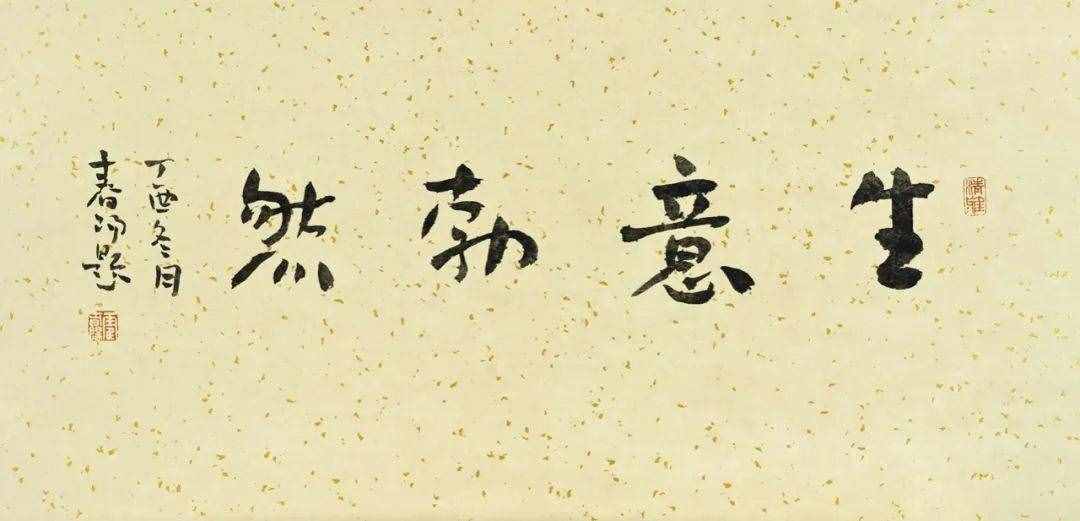 生意勃然
丁酉冬月
春阳题